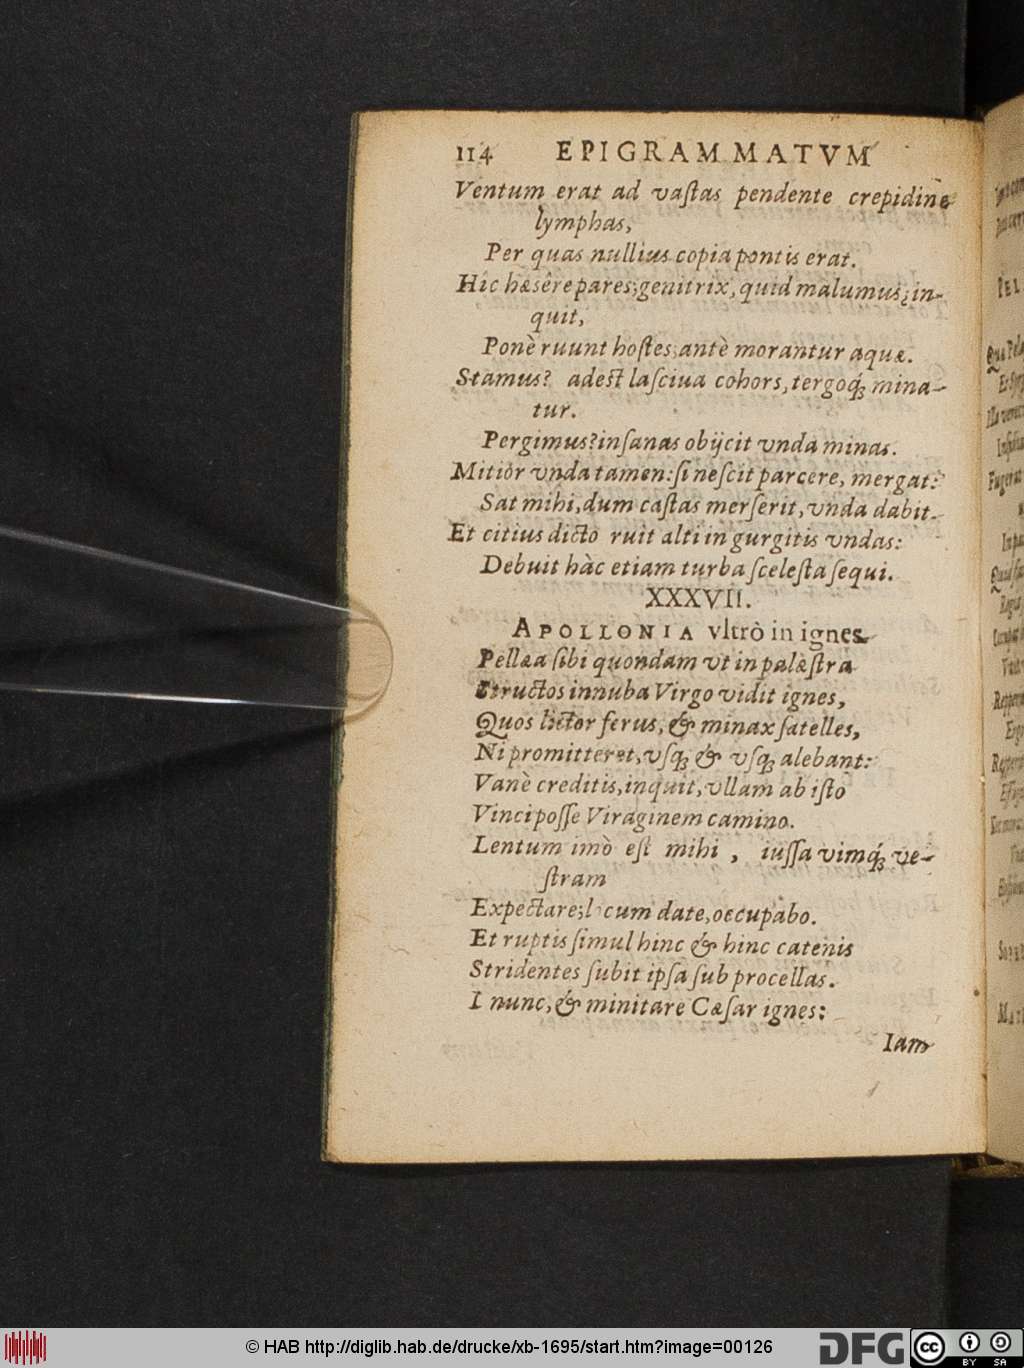 114 EPIGRAMMATVM
Ventum erat ad vaſtas pendente crepidine
lymphas,
Per quas nullius copia pontis erat.
Hic hæsêre pares; genitrix, quid malumus, in-
quit,
Ponè ruunt hoſtes; antè morantur aquæ.
Stamus? adest laſciua cohors, tergoq́; mina-
tur.
Pergimus? inſanas obijcit vnda minas.
Mitiòr vnda tamen: ſi neſcit parcere, mergat:
Sat mihi, dum caſtas merſerit, vnda dabit.
Et citius dicto ruit alti in gurgitis vndas:
Debuit hàc etiam turba ſceleſta ſequi.
XXXVII.
APOLLONIA vltrò in ignes.
Pellæa ſibi quondam vt in palæſtra
Structos innuba Virgo vidit ignes,
Quos lictor ferus, & minax ſatelles,
Ni promitteret, vſq; & vſq; alebant:
Vanè creditis, inquit, vllam ab iſto
Vinci poſſe Viraginem camino.
Lentum imò est mihi, iuſſa vimq́; ve-
ſtram
Expectare; locum date, occupabo.
Et ruptis ſimul hinc & hinc catenis
Stridentes ſubit ipſa ſub procellas.
I nunc, & minitare Cæſar ignes:
Iam
PEL
Qua Pela
In pa
Vnt
MAT
© HAB http://diglib.hab.de/drucke/xb-1695/start.htm?image=00126
DFG
cc BY SA